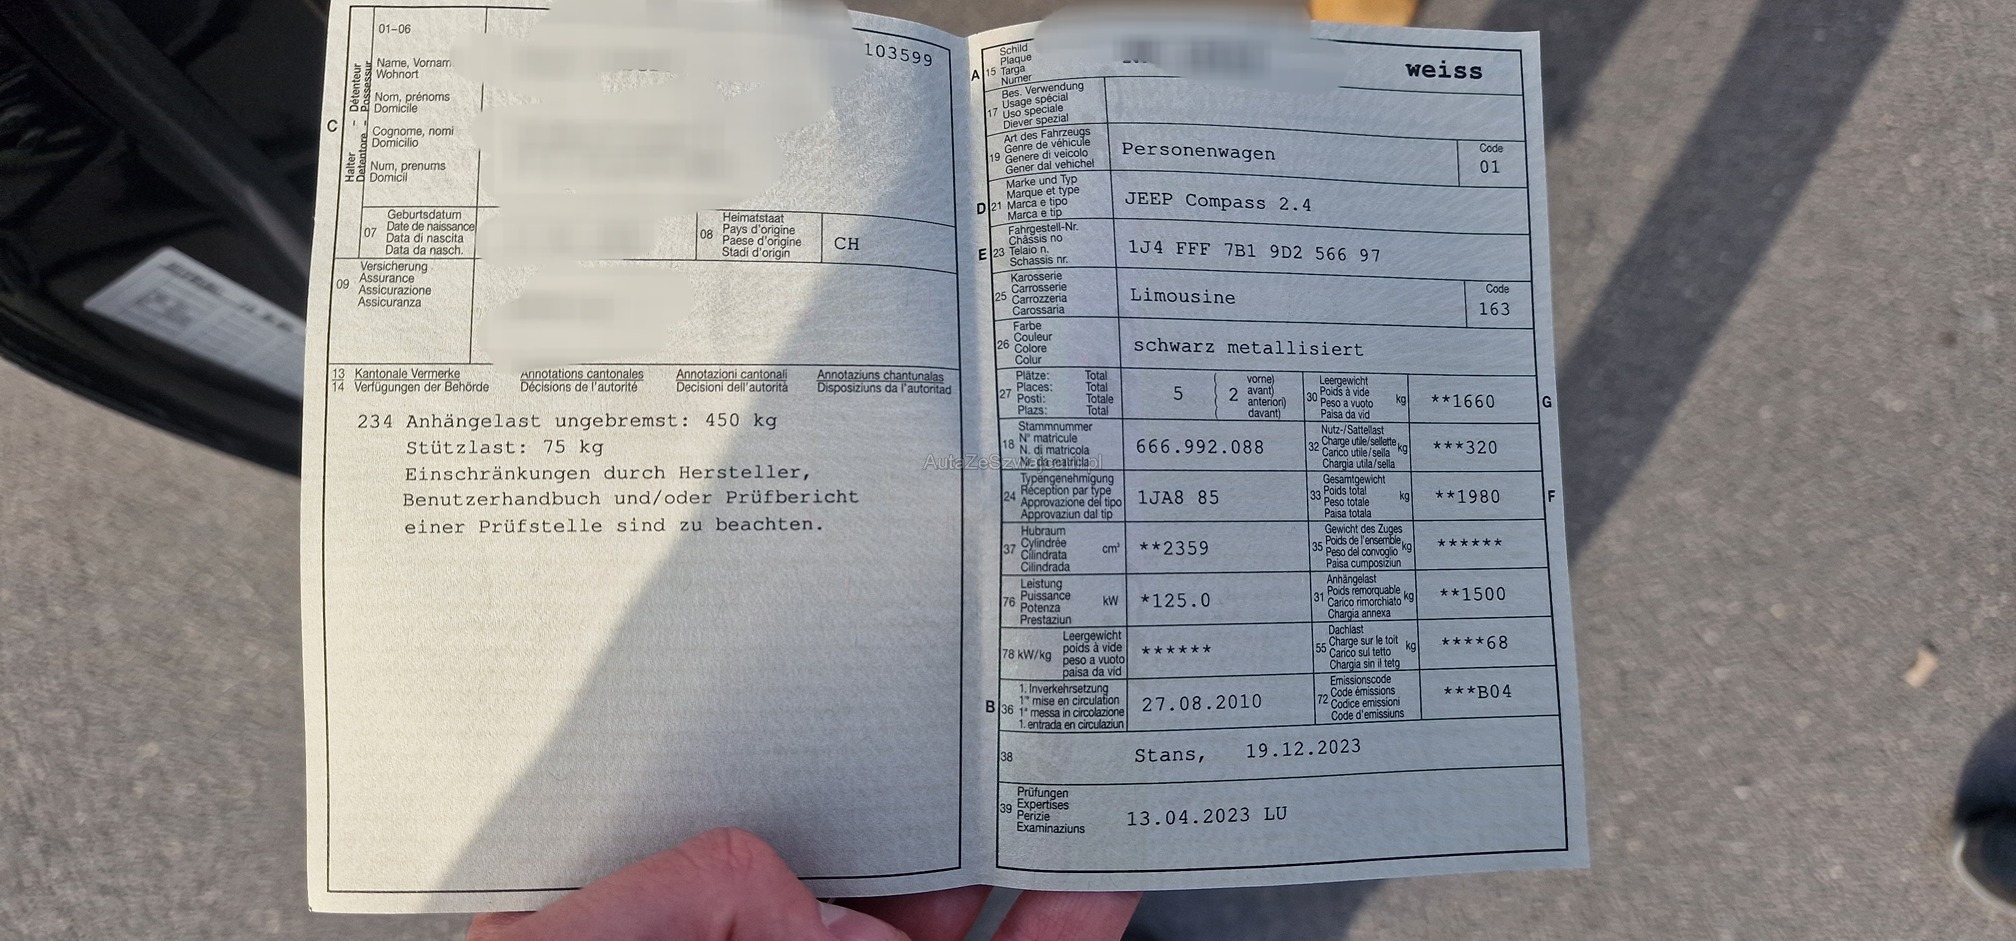 01-06
103599
C
Halter - Détenteur
Detentore - Possessur
Name, Vornam
Wohnort
Nom, prénoms
Domicile
Cognome, nomi
Domicilio
Num, prenums
Domicil
07
Geburtsdatum
Date de naissance
Data di nascita
Data da nasch.
08
Heimatstaat
Pays d'origine
Paese d'origine
Stadi d'origin
CH
09
Versicherung
Assurance
Assicurazione
Assicuranza
13 Kantonale Vermerke Annotations cantonales Annotazioni cantonali Annotaziuns chantunalas
14 Verfügungen der Behörde Décisions de l'autorité Decisioni dell'autorità Disposiziuns da l'autoritad
234 Anhängelast ungebremst: 450 kg
Stützlast: 75 kg
Einschränkungen durch Hersteller,
Benutzerhandbuch und/oder Prüfbericht
einer Prüfstelle sind zu beachten.
A 15
Schild
Plaque
Targa
Numer
weiss
17
Bes. Verwendung
Usage spécial
Uso speciale
Diever spezial
19
Art des Fahrzeugs
Genre de véhicule
Genere di veicolo
Gener dal vehichel
Personenwagen
Code
01
D 21
Marke und Typ
Marque et type
Marca e tipo
Marca e tip
JEEP Compass 2.4
E 23
Fahrgestell-Nr.
Châssis no
Telaio n.
Schassis nr.
1J4 FFF 7B1 9D2 566 97
25
Karosserie
Carrosserie
Carrozzeria
Carossaria
Limousine
Code
163
26
Farbe
Couleur
Colore
Colur
schwarz metallisiert
27
Plätze: Total
Places: Total
Posti: Totale
Plazs: Total
5
2
vorne)
avant)
anteriori)
davant)
30
Leergewicht
Poids à vide
Peso a vuoto
Paisa da vid
kg
**1660
G
18
Stammnummer
N° matricule
N. di matricola
Nr. da matricla
666.992.088
32
Nutz-/Sattellast
Charge utile/sellette
Carico utile/sella
Chargia utila/sella
kg
***320
AutaZeSzwajcarii.pl
24
Typengenehmigung
Réception par type
Approvazione del tipo
Approvaziun dal tip
1JA8 85
33
Gesamtgewicht
Poids total
Peso totale
Paisa totala
kg
**1980
F
37
Hubraum
Cylindrée
Cilindrata
Cilindrada
cm³
**2359
35
Gewicht des Zuges
Poids de l'ensemble
Peso del convoglio
Paisa cumposiziun
kg
******
76
Leistung
Puissance
Potenza
Prestaziun
kW
*125.0
31
Anhängelast
Poids remorquable
Carico rimorchiato
Chargia annexa
kg
**1500
78 kW/kg
Leergewicht
poids à vide
peso a vuoto
paisa da vid
******
55
Dachlast
Charge sur le toit
Carico sul tetto
Chargia sin il tetg
kg
****68
B 36
1. Inverkehrsetzung
1re mise en circulation
1a messa in circolazione
1. entrada en circulaziun
27.08.2010
72
Emissionscode
Code émissions
Codice emissioni
Code d'emissiuns
***B04
38
Stans, 19.12.2023
39
Prüfungen
Expertises
Perizie
Examinaziuns
13.04.2023 LU